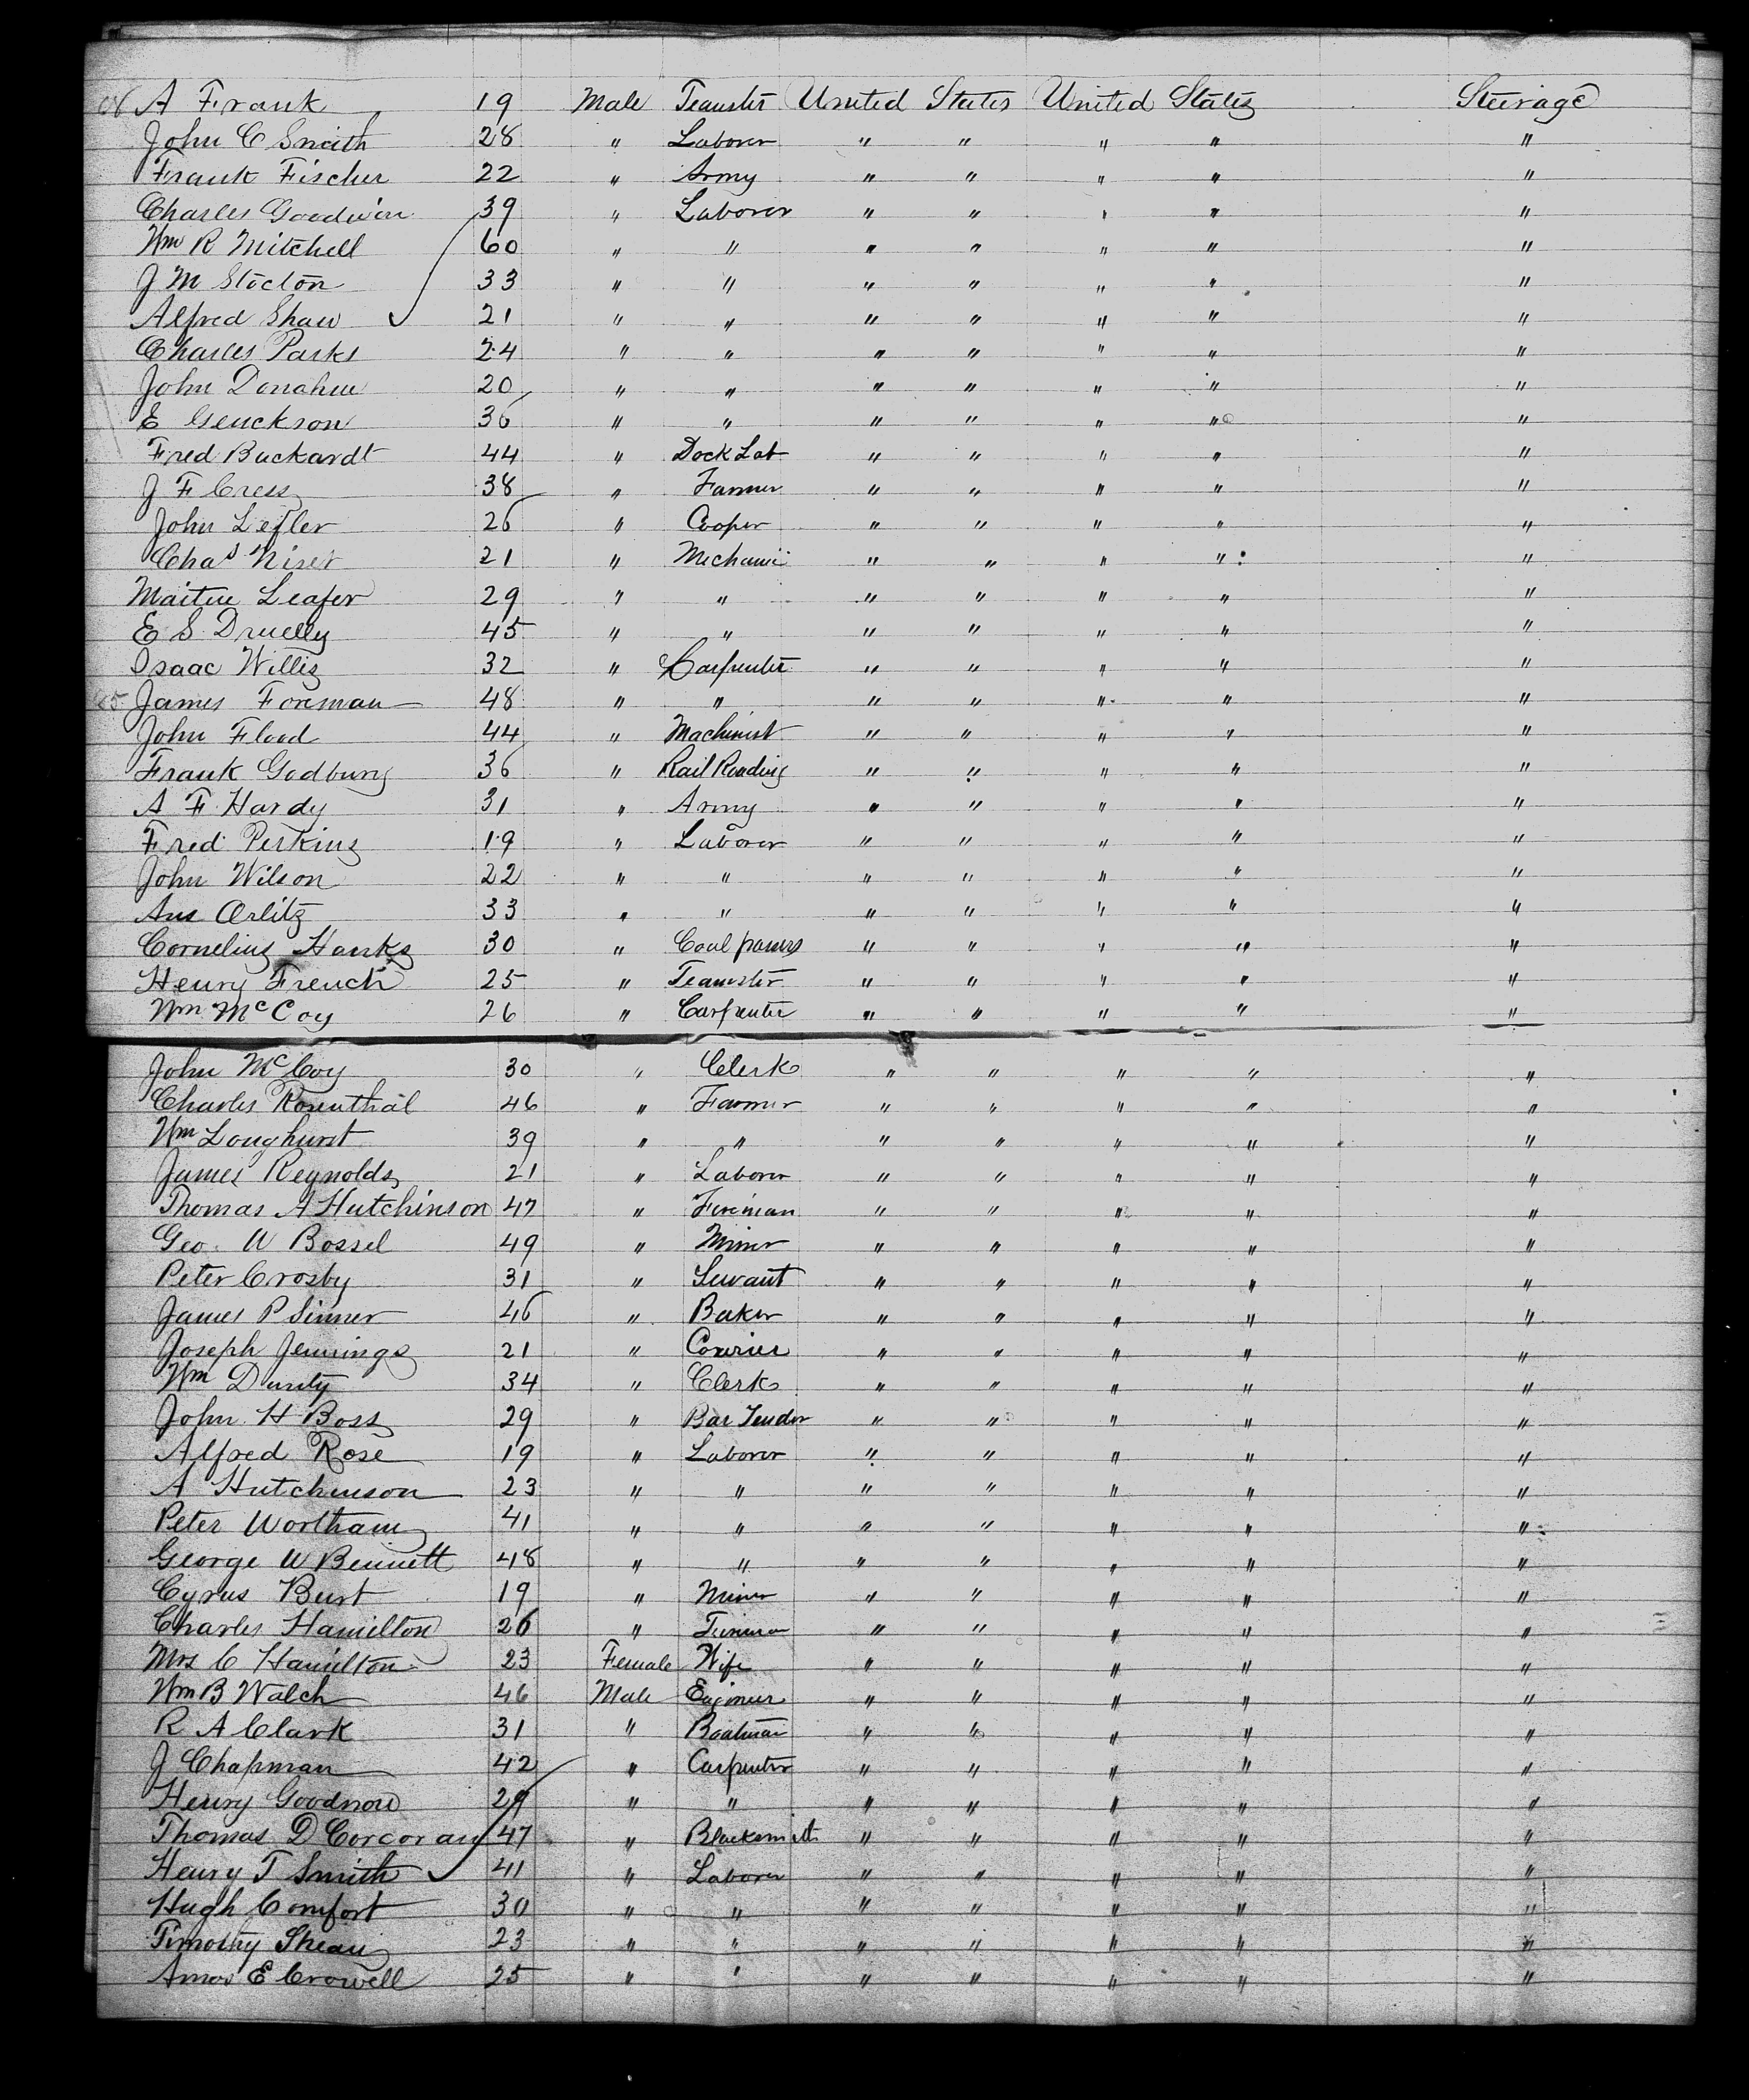 A Frank 19 Male Teamster United States United States Steerage
John C Smith 28 " Laborer " " " " "
Frank Fischer 22 " Army " " " " "
Charles Goodwin 39 " Laborer " " " " "
Wm R Mitchell 60 " " " " " " "
J M Stocton 33 " " " " " " "
Alfred Shaw 21 " " " " " " "
Charles Parks 24 " " " " " " "
John Donahue 20 " " " " " " "
E Genckson 36 " " " " " " "
Fred Buckardt 44 " Dock Lab " " " " "
J F Cress 38 " Farmer " " " " "
John Lefler 26 " Cooper " " " " "
Chas 21 " Mechanic " " " " "
Martin Leafer 29 " " " " " " "
E S Druelly 45 " " " " " " "
Isaac Willis 32 " Carpenter " " " " "
James Foreman 48 " " " " " " "
John Flood 44 " Machinist " " " " "
Frank Godbury 36 " Rail Roading " " " " "
A F Hardy 31 " Army " " " " "
Fred Perkins 19 " Laborer " " " " "
John Wilson 22 " " " " " " "
Orlitz 33 " " " " " " "
Cornelius Hanks 30 " Coal passer " " " " "
Henry French 25 " Teamster " " " " "
Wm McCoy 26 " Carpenter " " " " "
John McCoy 30 " Clerk " " " " "
Charles Rosenthal 46 " Farmer " " " " "
Wm Longhurst 39 " " " " " " "
James Reynolds 21 " Laborer " " " " "
Thomas A Hutchinson 47 " Fireman " " " " "
Geo. W Bossel 49 " Miner " " " " "
Peter Crosby 31 " Servant " " " " "
James P Sinner 46 " Baker " " " " "
Joseph Jennings 21 " Courier " " " " "
Wm Dunty 34 " Clerk " " " " "
John H Boss 29 " Bar Tender " " " " "
Alfred Rose 19 " Laborer " " " " "
A Hutchinson 23 " " " " " " "
Peter Wortham 41 " " " " " " "
George W Bennett 48 " " " " " " "
Cyrus Burt 19 " Miner " " " " "
Charles Hamilton 26 " " " " " "
Mrs C Hamilton 23 Female Wife " " " " "
Wm B Walch 46 Male Engineer " " " " "
R A Clark 31 " Boatman " " " " "
J Chapman 42 " Carpenter " " " " "
Henry Goodnow 29 " " " " " " "
Thomas D Corcoran 47 " Blacksmith " " " " "
Henry T Smith 41 " Laborer " " " " "
Hugh Comfort 30 " " " " " " "
Timothy Shean 23 " " " " " " "
Amos E Crowell 25 " " " " " " "